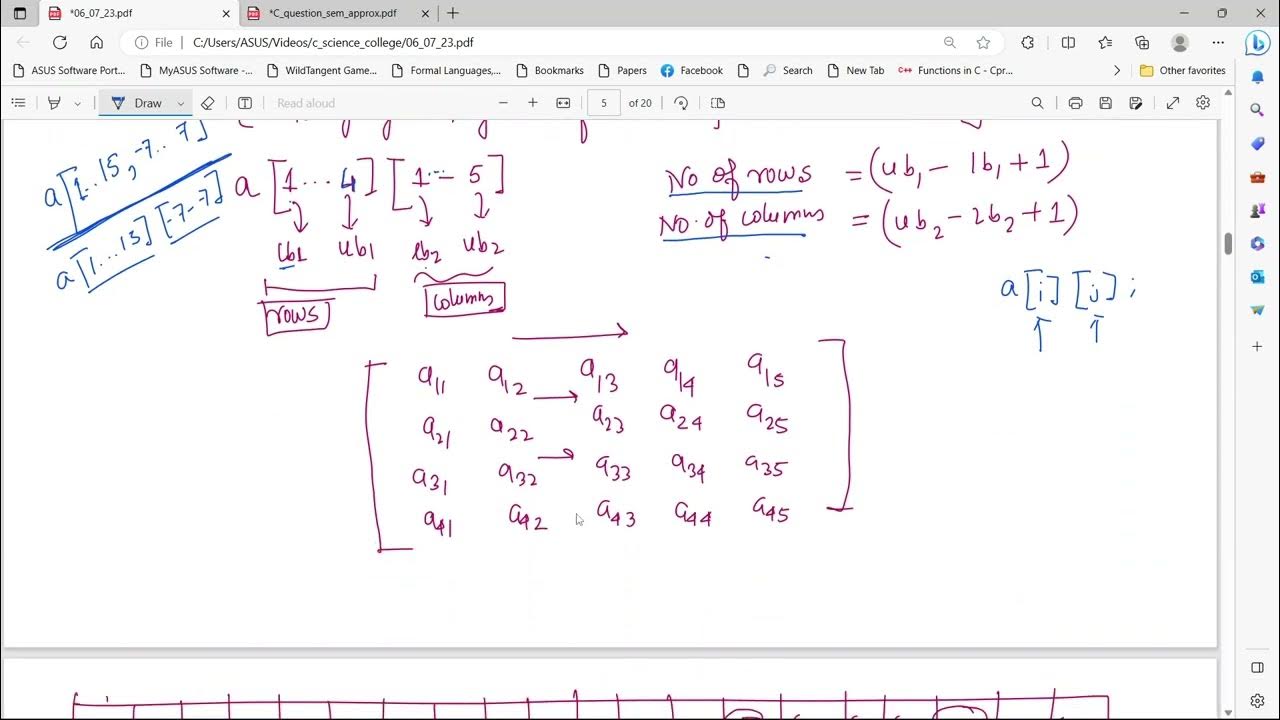 *06_07_23.pdf
*C_question_sem_approx.pdf
File
C:/Users/ASUS/Videos/c_science_college/06_07_23.pdf
ASUS Software Port...
MyASUS Software -...
WildTangent Game...
Formal Languages,...
Bookmarks
Papers
Facebook
Search
New Tab
Functions in C - Cpr...
Other favorites
Draw
Read aloud
5 of 20
a[1..15, -7..7]
a[1...15] [-7-7]
a [1 ... 4] [1 -- 5]
lb1 ub1 lb2 ub2
rows
columns
No of rows = (ub1 - lb1 + 1)
No. of columns = (ub2 - 2b2 + 1)
a[i] [j] ;
a11 a12 a13 a14 a15
a21 a22 a23 a24 a25
a31 a32 a33 a34 a35
a41 a42 a43 a44 a45